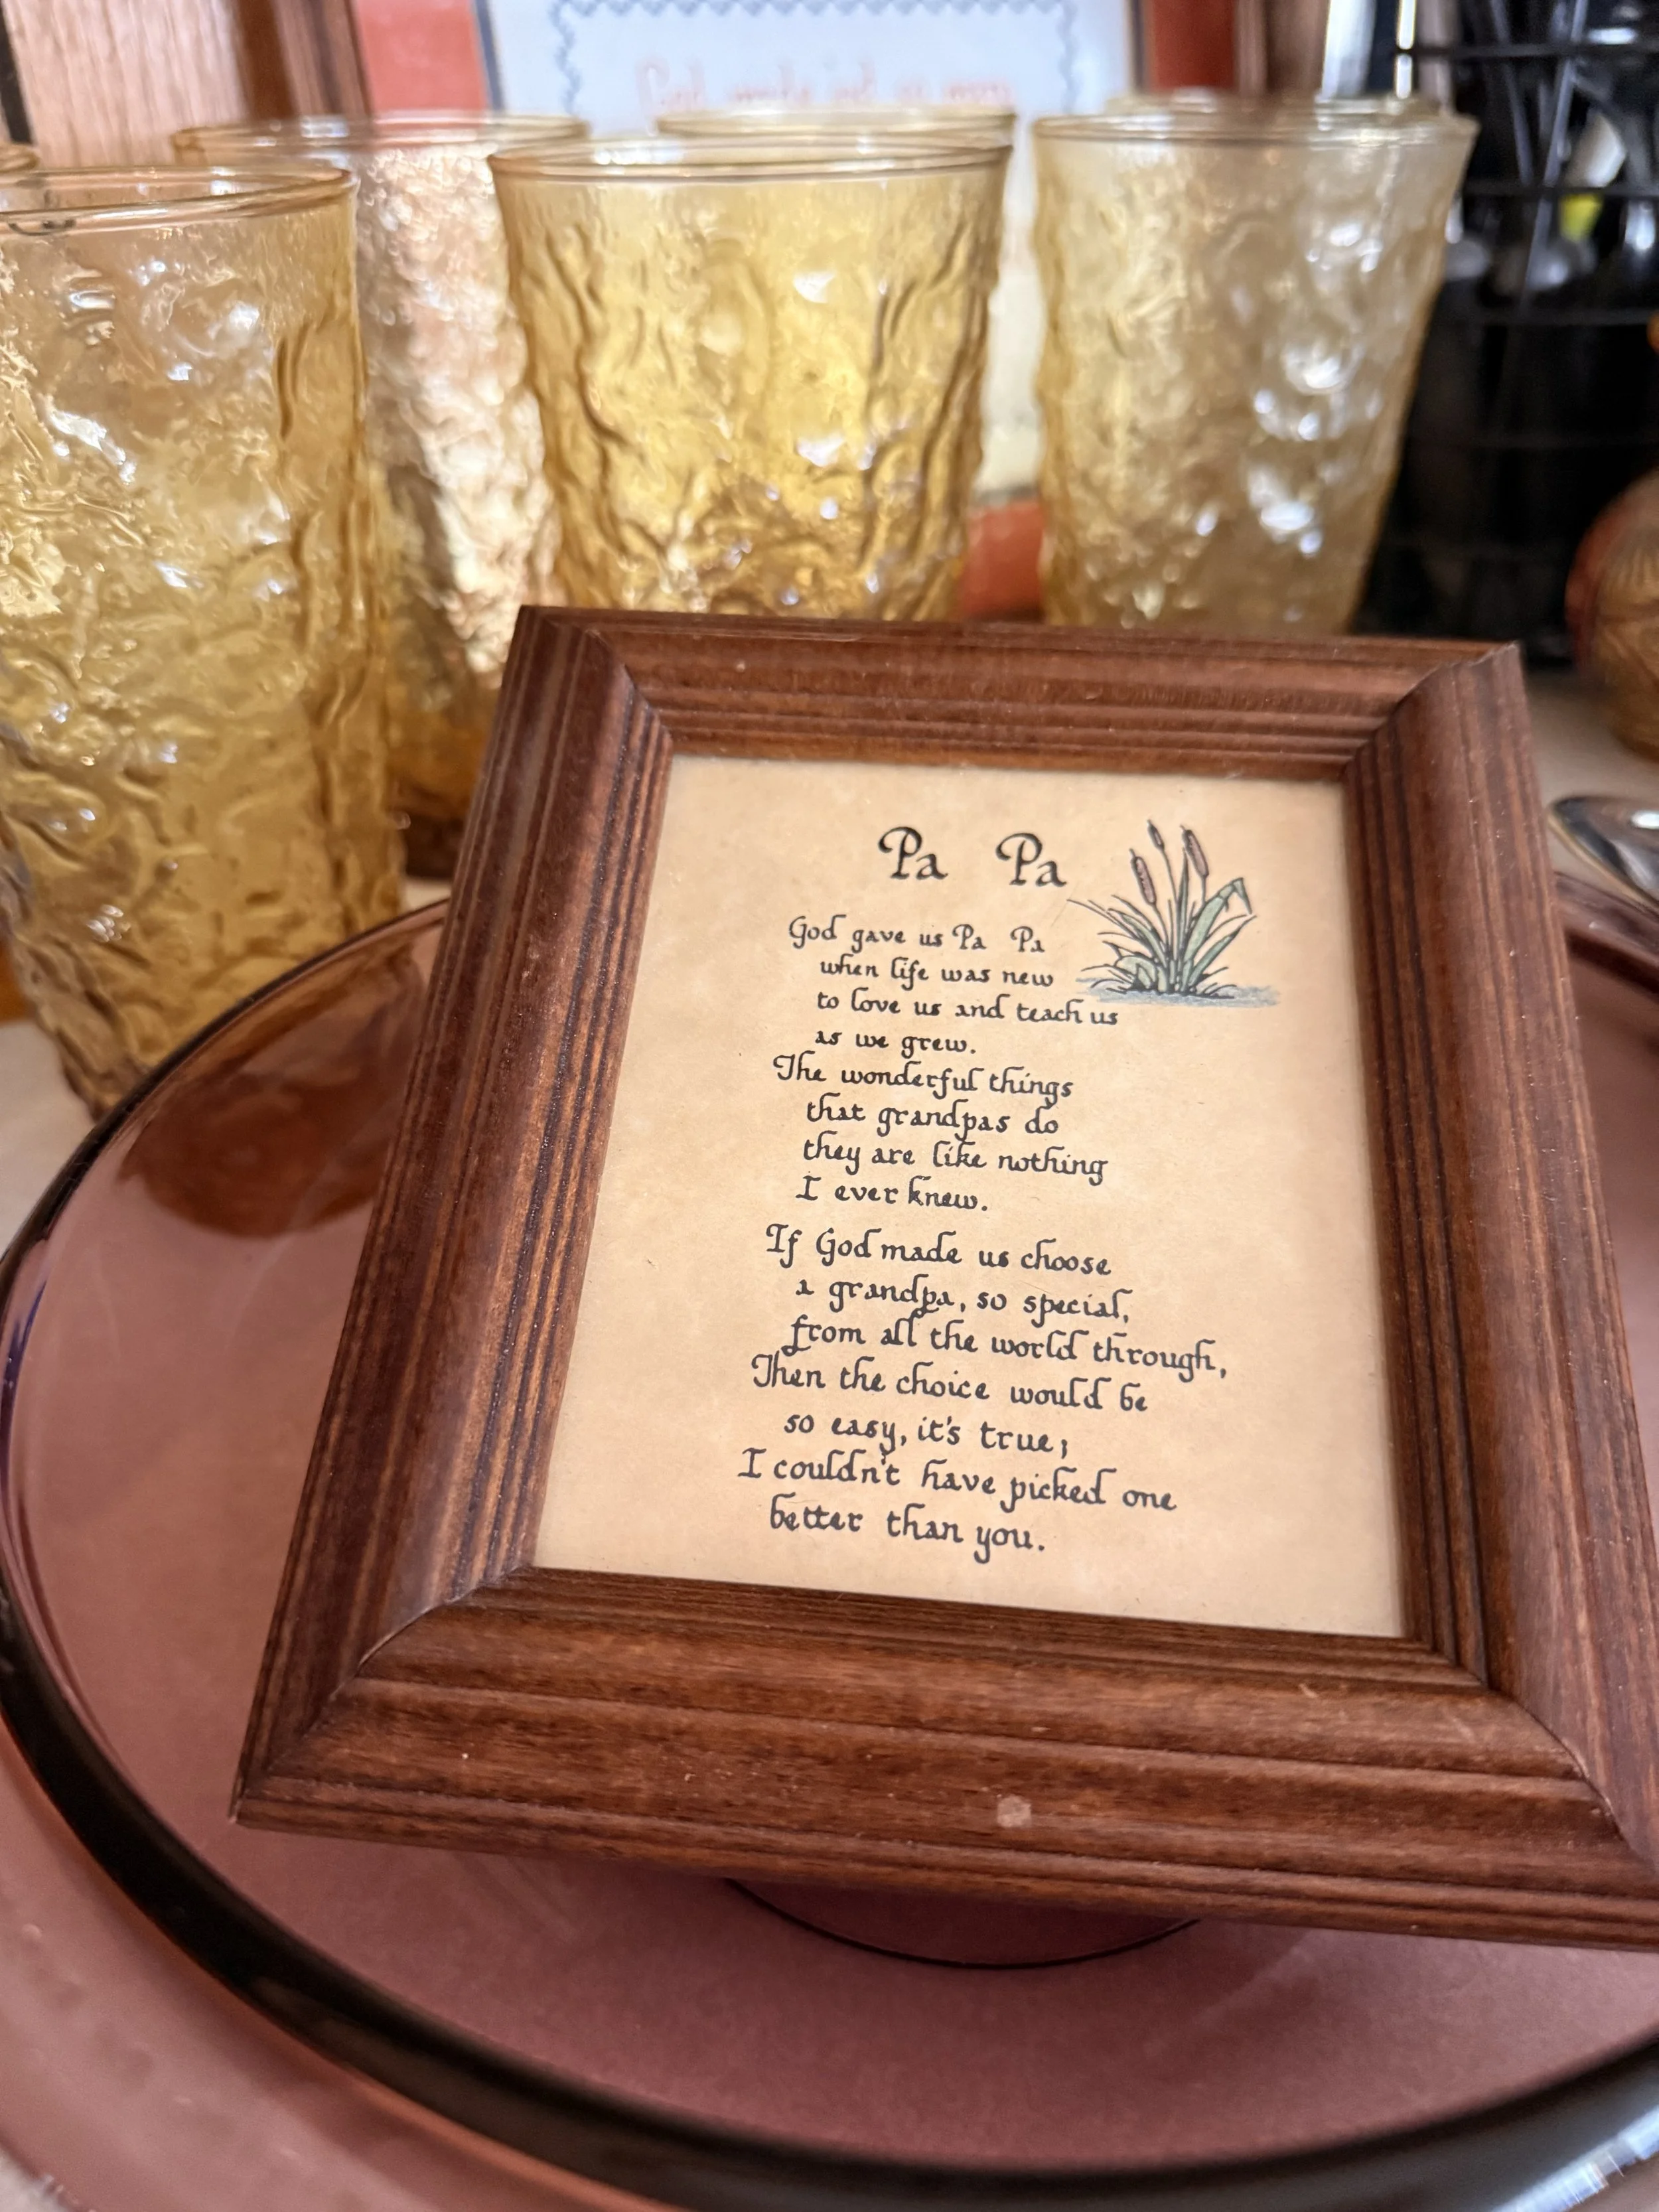 God made
Pa Pa
God gave us Pa Pa
when life was new
to love us and teach us
as we grew.
The wonderful things
that grandpas do
they are like nothing
I ever knew.
If God made us choose
a grandpa, so special,
from all the world through,
Then the choice would be
so easy, it's true;
I couldn't have picked one
better than you.